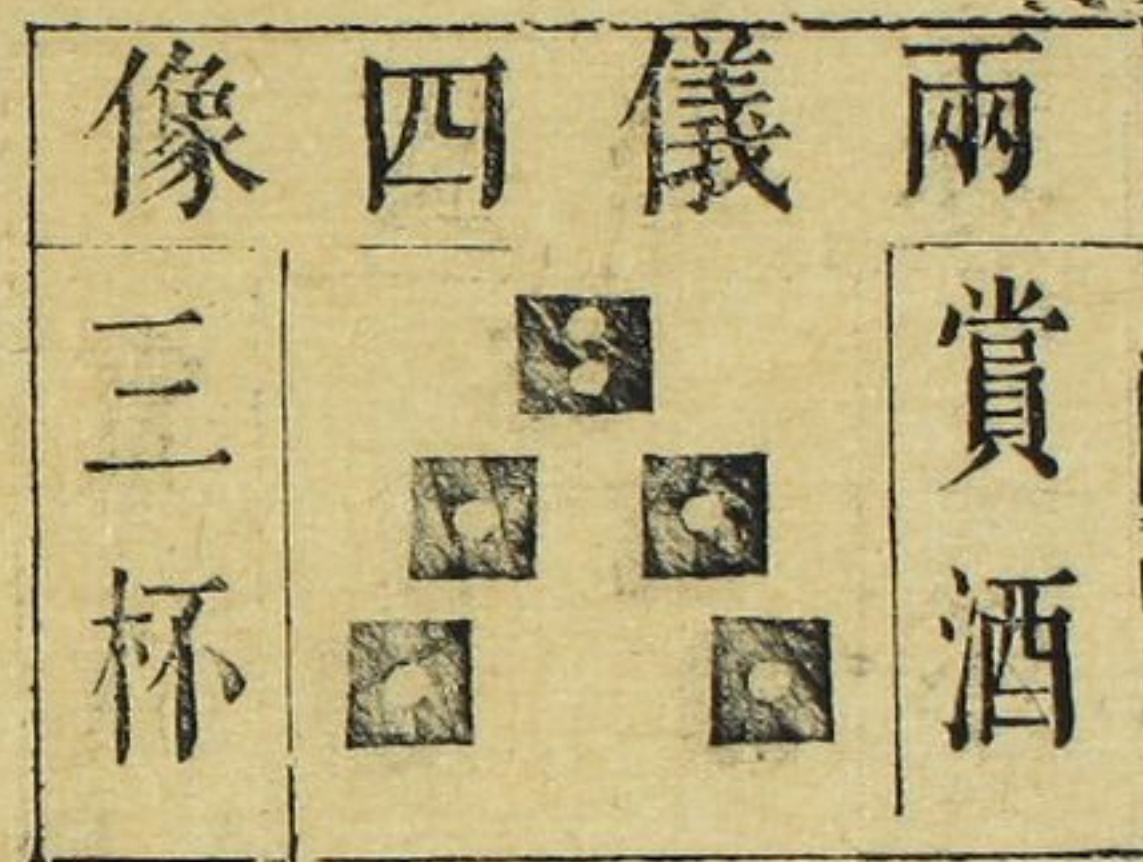 兩儀四像
賞酒
三杯